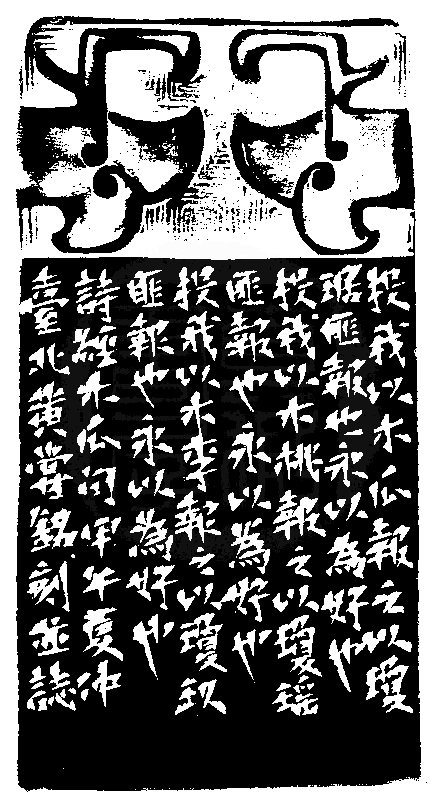 投我以木瓜報之以瓊
琚匪報也永以為好也
投我以木桃報之以瓊瑤
匪報也永以為好也
投我以木李報之以瓊玖
匪報也永以為好也
詩經木瓜句甲午夏仲
臺北黃嘗銘刻並誌